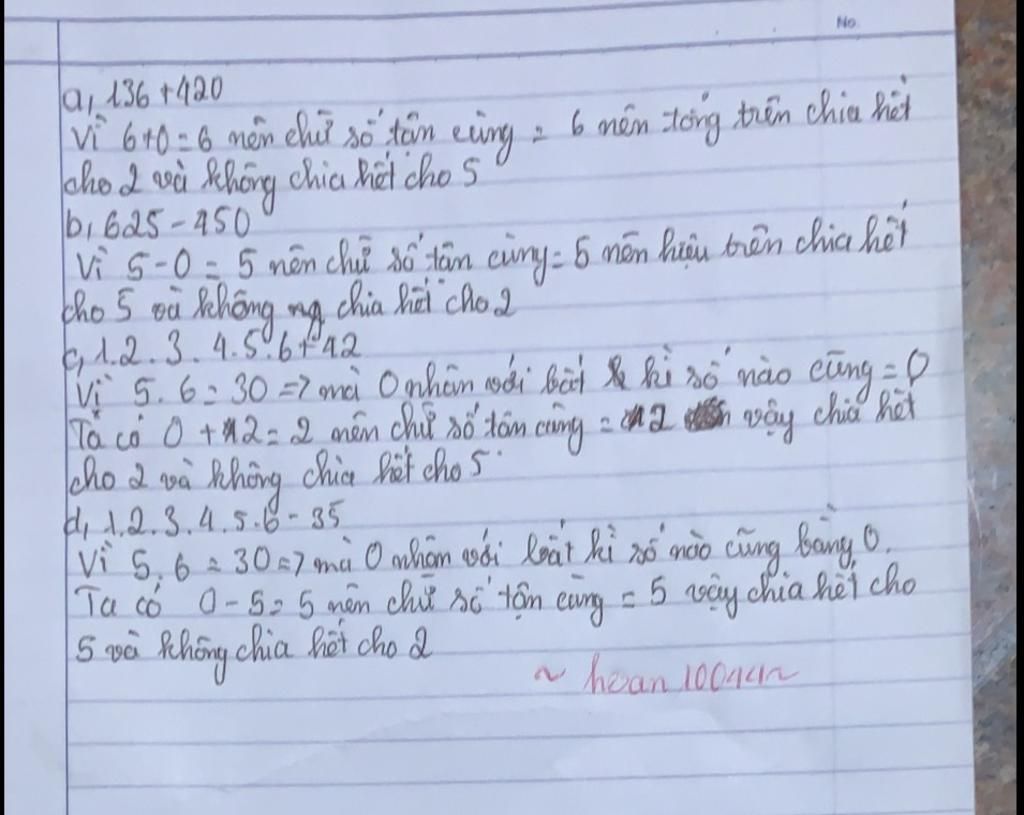 No
a, 136+420
Vì 6+0=6 nên chữ số tân cùng = 6 nên tổng trên chia hết
cho 2 và không chia hết cho 5
b, 625-450
Vì 5-0=5 nên chữ số tân cùng=5 nên hiệu trên chia hết
cho 5 và không chia hết cho 2
c, 1.2.3.4.5.6+42
Vì 5.6=30=> mà 0 nhân với bất kì số nào cũng=0
Ta có 0+2=2 nên chữ số tân cùng = 2 vậy chia hết
cho 2 và không chia hết cho 5.
d, 1.2.3.4.5.6-35
Vì 5.6=30=> mà 0 nhân với bất kì số nào cũng bằng 0.
Ta có 0-5=5 nên chữ số tận cùng = 5 vậy chia hết cho
5 và không chia hết cho 2
~ hoan